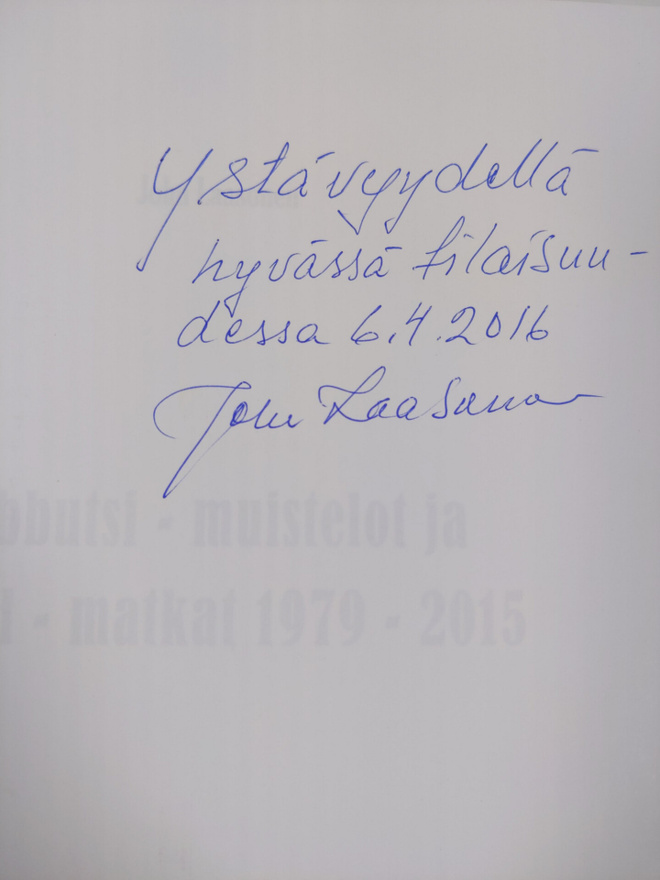 Ystävyydellä
hyvässä tilaisuu-
dessa 6.4.2016
John Laasanen
bbutsi - muistelot ja
- matkat 1979 - 2015